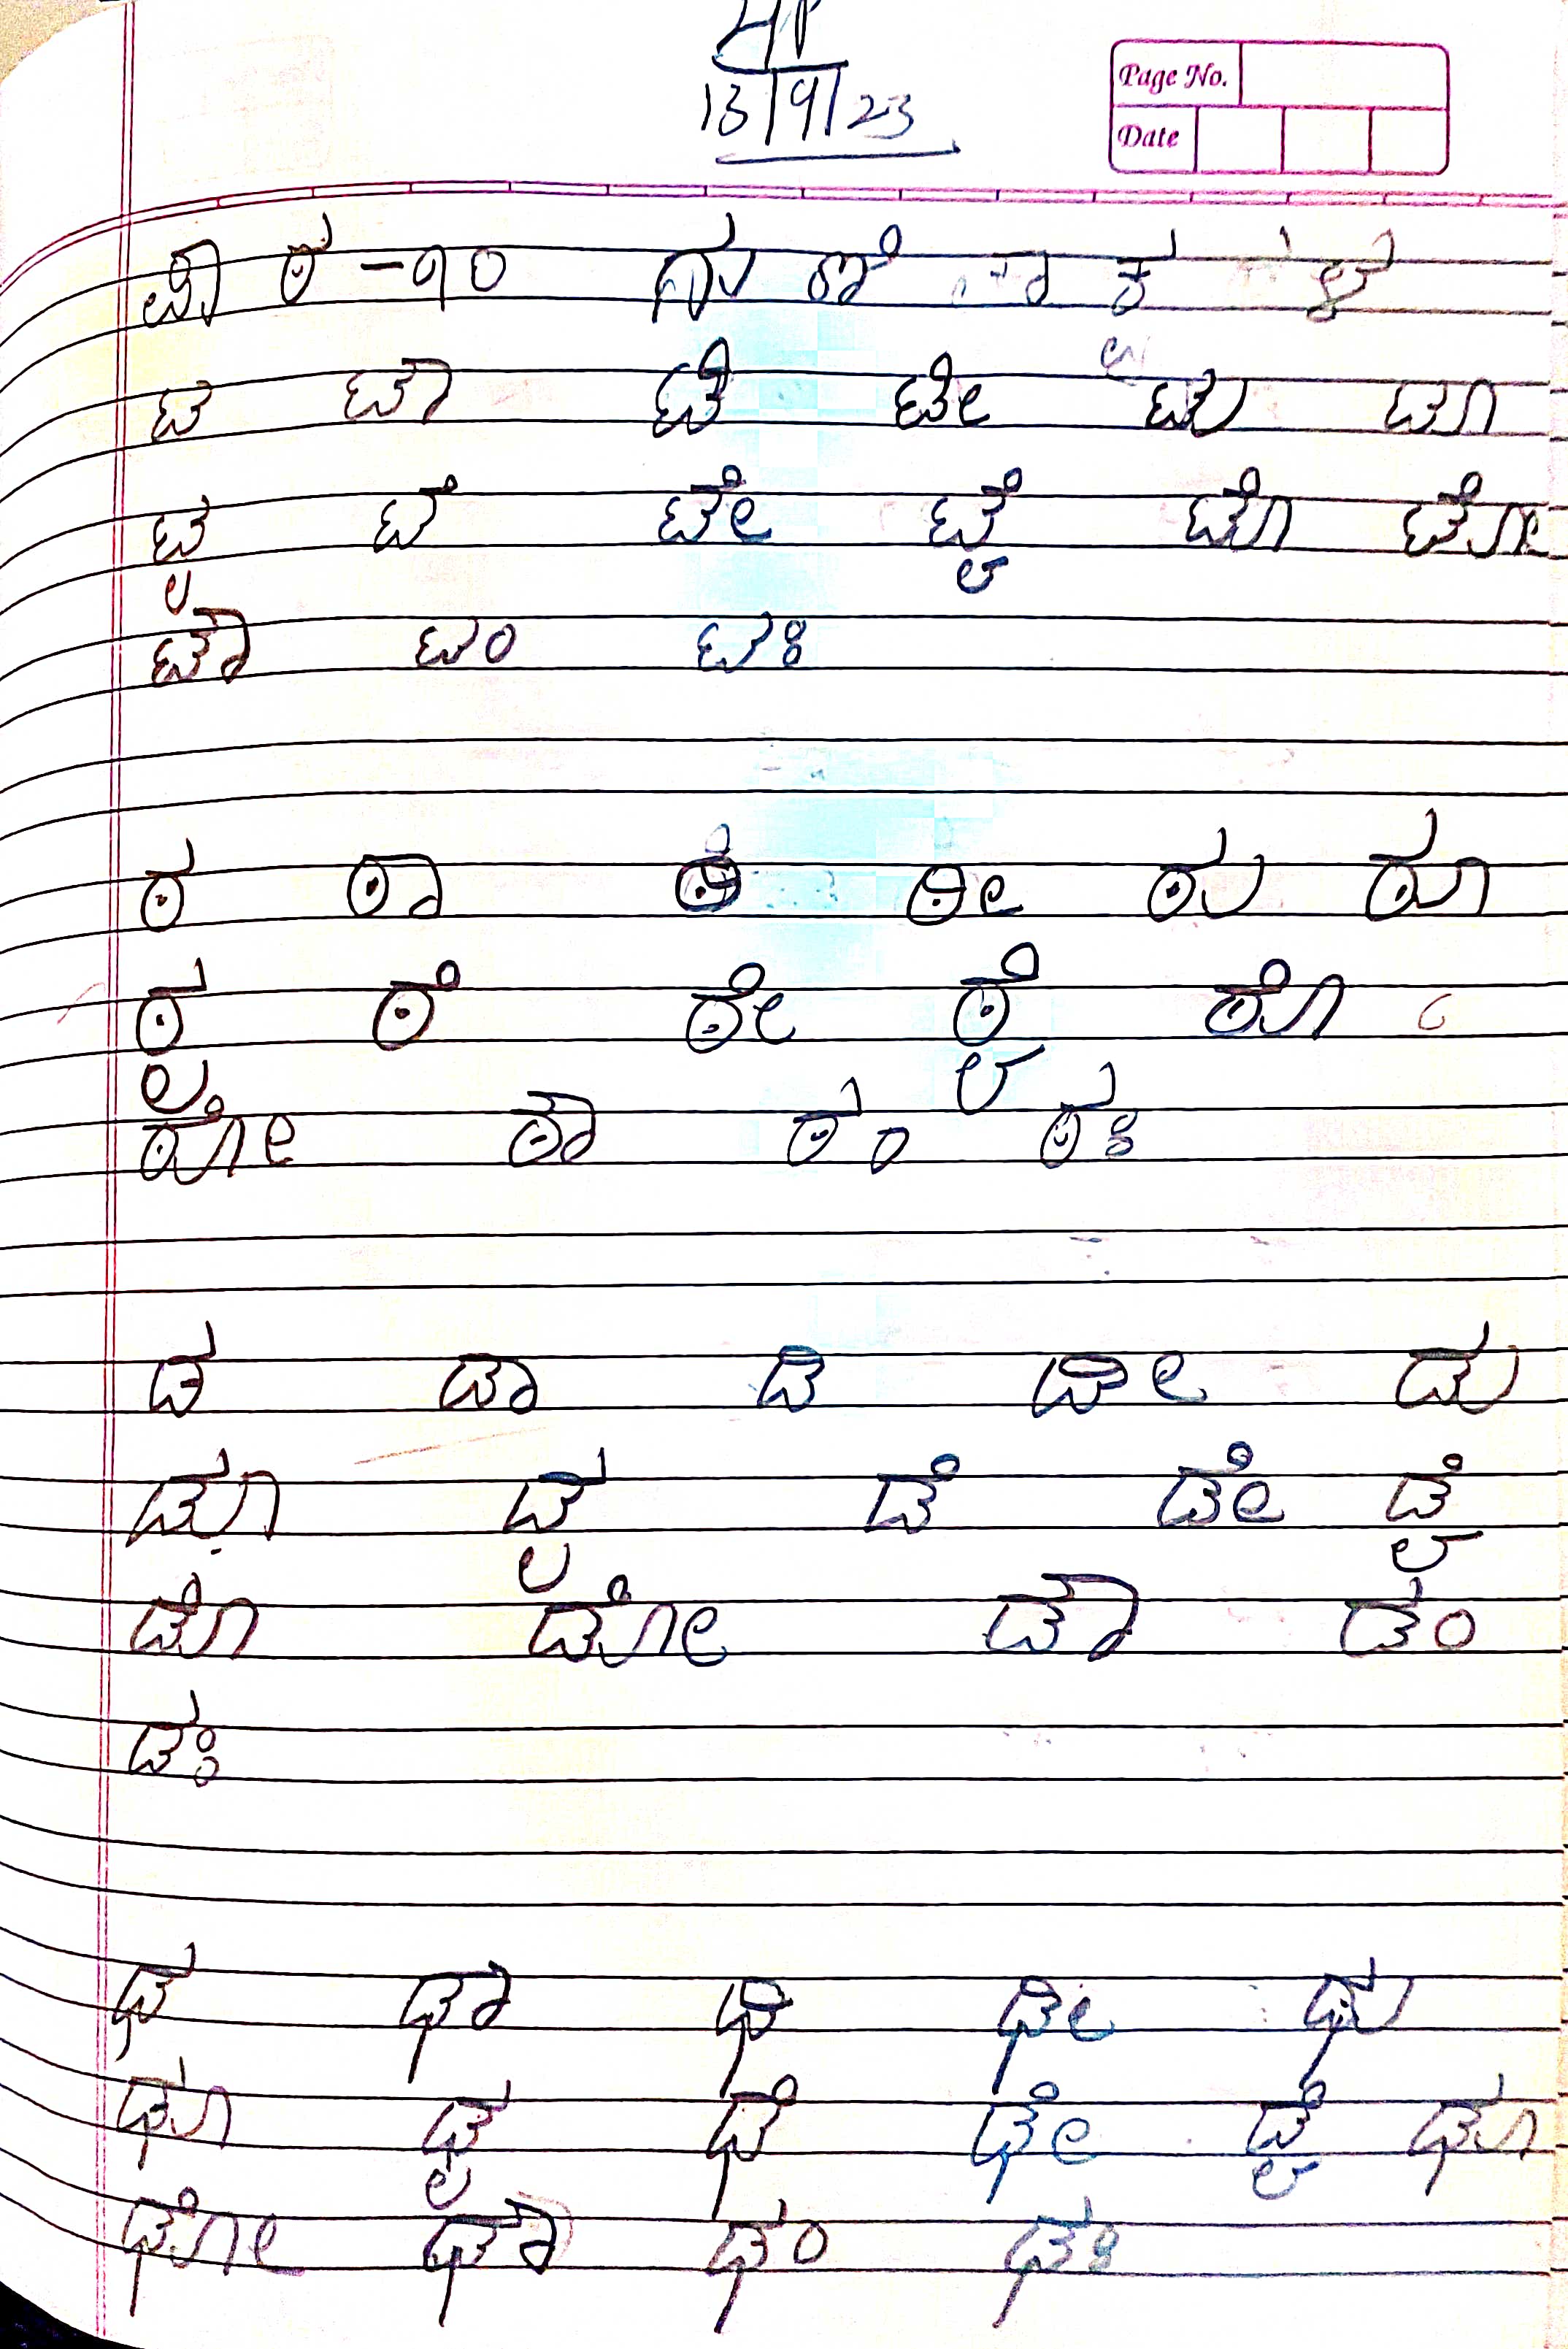 13/9/23
Page No.
Date
-೧೦
ಟ ಟಾ ಟಿ ಟೀ ಟು ಟೂ
ಟೃ ಟೆ ಟೇ ಟೈ ಟೊ ಟೋ
ಟೌ ಟಂ ಟಃ
ಠ ಠಾ ಠಿ ಠೀ ಠು ಠೂ
ಠೃ ಠೆ ಠೇ ಠೈ ಠೊ
ಠೋ ಠೌ ಠಂ ಠಃ
ಡ ಡಾ ಡಿ ಡೀ ಡು
ಡೂ ಡೃ ಡೆ ಡೇ ಡೈ
ಡೊ ಡೋ ಡೌ ಡಂ
ಡಃ
ಢ ಢಾ ಢಿ ಢೀ ಢು
ಢೂ ಢೃ ಢೆ ಢೇ ಡೈ ಢೂ
ಢೋ ಢೌ ಢಂ ಢಃ